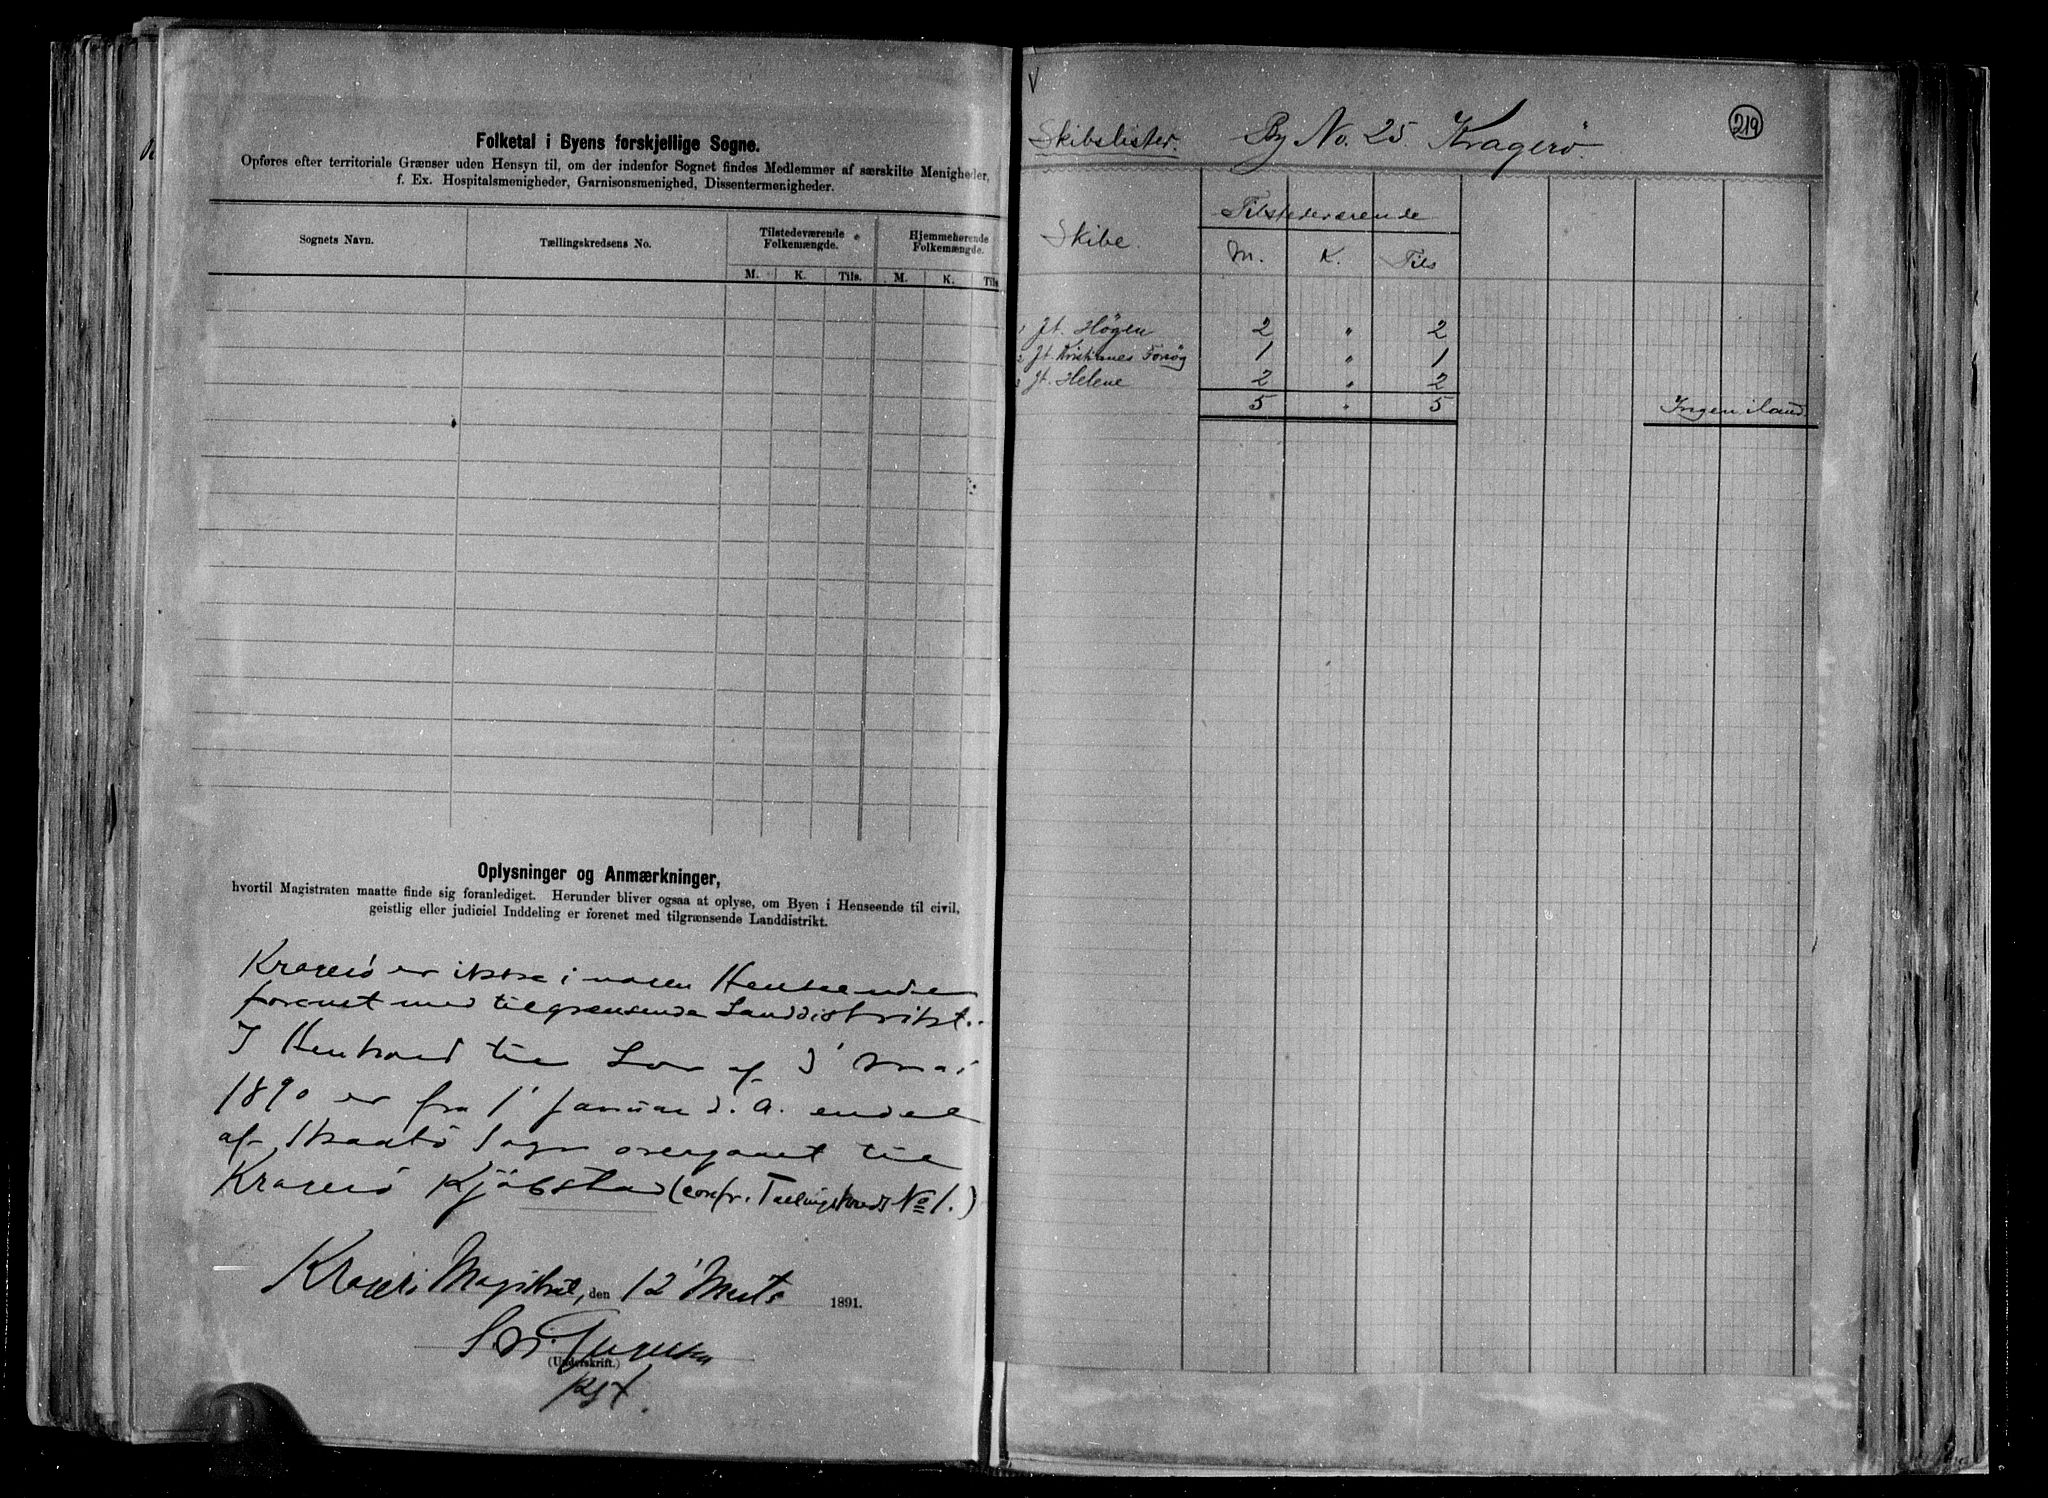 Folketal i Byens forskjellige Sogne.
Opføres efter territoriale Grænser uden Hensyn til, om der indenfor Sognet findes Medlemmer af særskilte Menigheder,
f. Ex. Hospitalsmenigheder, Garnisonsmenighed, Dissentermenigheder.
Sognets Navn. Tællingskredsens No. Tilstedeværende Folkemængde. Hjemmehørende Folkemængde.
M. K. Tils. M. K. Tils
Oplysninger og Anmærkninger,
hvortil Magistraten maatte finde sig foranlediget. Herunder bliver ogsaa at oplyse, om Byen i Henseende til civil,
geistlig eller judiciel Inddeling er forenet med tilgrænsende Landdistrikt.
Kragerø er ikke i nogen Henseende
forenet med tilgrænsende Landdistrikt.
I Henhold til Lov af 3' Mai
1890 er fra 1' Januar d. A. endel
af Skaatø Sogn overgaaet til
Kragerø Kjøbstad (confr. Tællingskreds No 1.)
Kragerø Magistrat, den 12' Marts 1891.
(Underskrift.)
V
219
Skibslister. By No. 25 Kragerø.
Skibe. Tilstedeværende
M. K. Tils
1 Jt. Høgen 2 " 2
2 Jt. Kristianes Forsøg 1 " 1
3 Jt. Helene 2 " 2
5 " 5 Ingen iland.